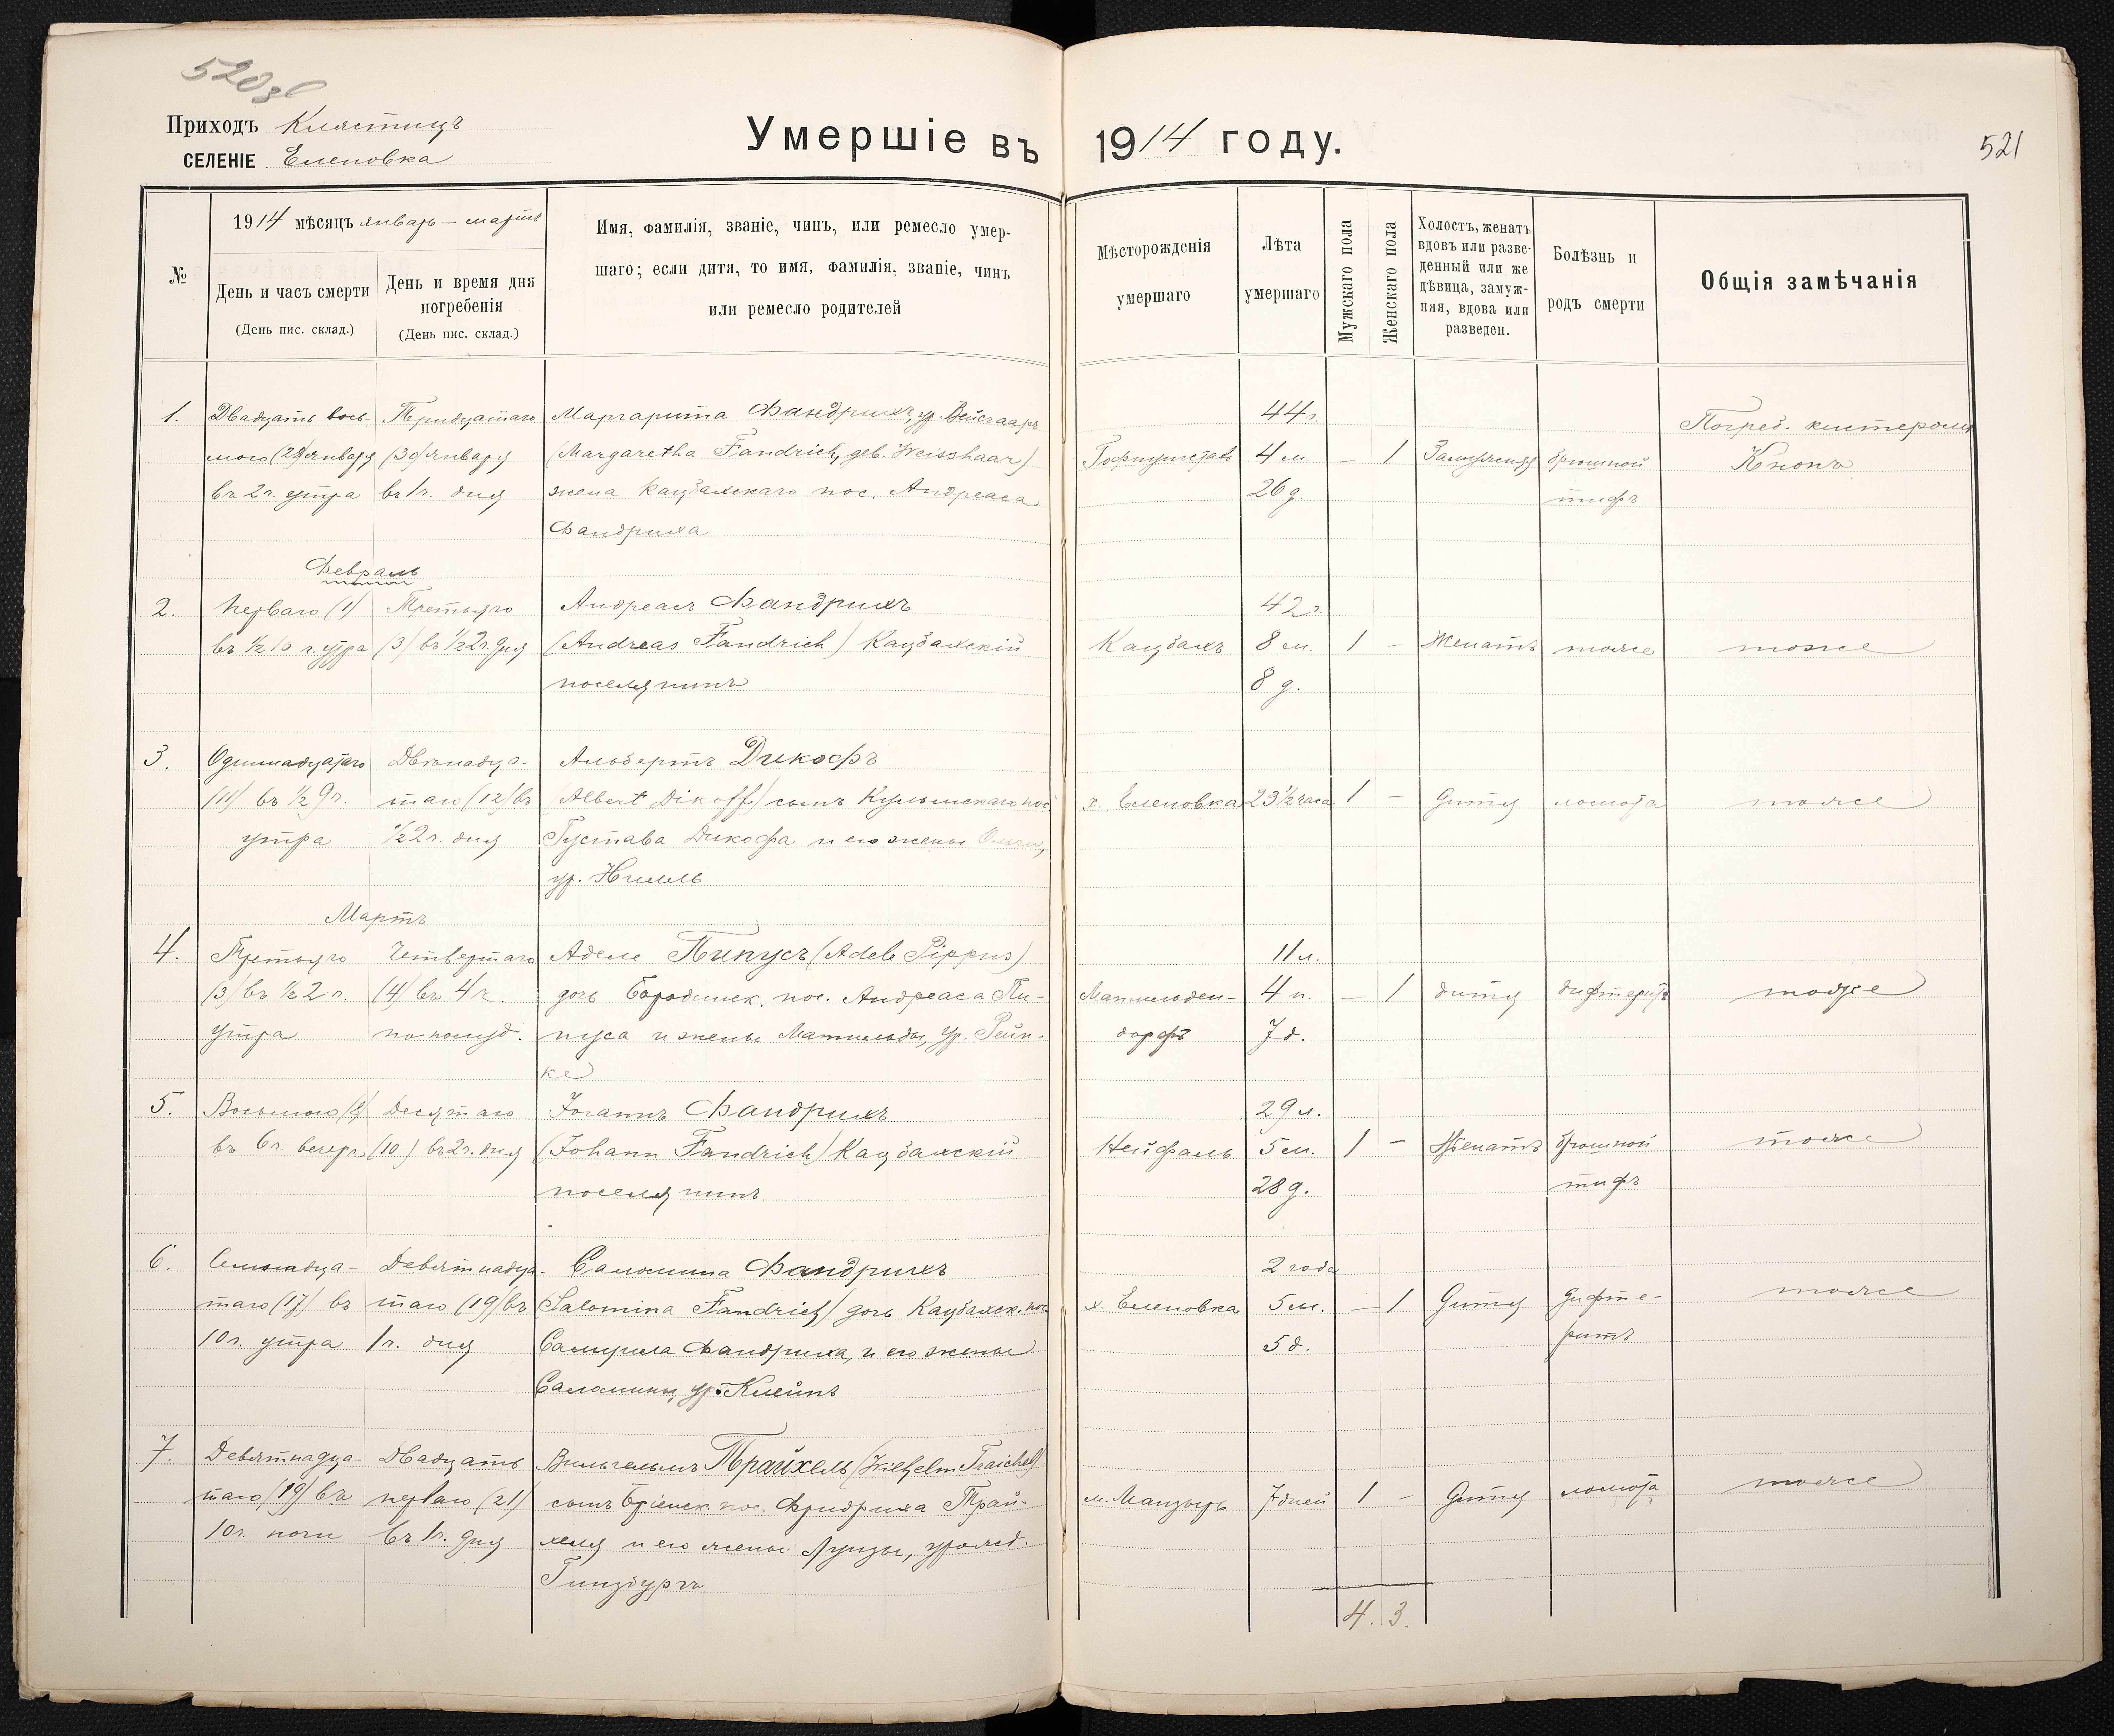 520 об
Приходъ Клястицъ
СЕЛЕНІЕ Еленовка
Умершіе въ 1914 году.
521
№
1914 мѣсяцъ январь – мартъ
День и часъ смерти
(День пис. склад.)
День и время дня
погребенія
(День пис. склад.)
Имя, фамилія, званіе, чинъ, или ремесло умер-
шаго; если дитя, то имя, фамилія, званіе, чинъ
или ремесло родителей
Мѣсторожденія
умершаго
Лѣта
умершаго
Мужскаго пола
Женскаго пола
Холостъ, женатъ
вдовъ или разве-
денный или же
дѣвица, замуж-
няя, вдова или
разведен.
Болѣзнь и
родъ смерти
Общія замѣчанія
1.
Двадцать вось-
мого (28) января
въ 2 ч. утра
Тридцатаго
(30) января
въ 1 ч. дня
Маргарита Фандрихъ, ур. Вейсгааръ
(Margaretha Fandrich, geb. Weisshaar)
жена Кацбахскаго пос. Андреаса
Фандриха
44 г.
4 м.
26 д.
– 1
Замужняя
брюшной
тифъ
Погреб. кистеромъ
Кнопъ
Февраль
2.
Перваго (1)
въ ½ 10 ч. утра
Третьяго
(3) въ ½ 2 ч. дня
Андреасъ Фандрихъ
(Andreas Fandrich) Кацбахскій
поселянинъ
Кацбахъ
42 г.
8 м.
8 д.
1 –
Женатъ
тоже
тоже
3.
Одиннадцатаго
(11) въ ½ 9 ч.
утра
Двѣнадца-
таго (12) въ
½ 2 ч. дня
Альбертъ Дикофъ
(Albert Dikoff) сынъ Кульмскаго пос.
Густава Дикофа и его жены Ольги,
ур.
х. Еленовка
23½ часа
1 –
Дитя
ломота
тоже
Мартъ
4.
Третьяго
(3) въ ½ 2 ч.
утра
Четвертаго
(4) въ 4 ч.
по полуд.
Аделе Пипусъ (Adele Pippus)
дочь Бородинск. пос. Андреаса Пи-
пуса и жены Матильды, ур. Рейн-
ке
Матильден-
дорфъ
11 л.
4 м.
7 д.
– 1
дитя
дифтеритъ
тоже
5.
Восьмого (8)
въ 6 ч. вечера
Десятаго
(10) въ 2 ч. дня
Іоганнъ Фандрихъ
(Johann Fandrich) Кацбахскій
поселянинъ
Нейфаль
29 л.
5 м.
28 д.
1 –
Женатъ
брюшной
тифъ
тоже
6.
Семнадца-
таго (17) въ
10 ч. утра
Девятнадца-
таго (19) въ
1 ч. дня
Саломина Фандрихъ
(Salomina Fandrich) дочь Кацбахск. пос.
Самуила Фандриха, и его жены
Саломины, ур. Клейнъ
х. Еленовка
2 года
5 м.
5 д.
– 1
Дитя
дифте-
ритъ
тоже
7.
Девятнадца-
таго (19) въ
10 ч. ночи
Двадцать
перваго (21)
въ 1 ч. дня
Вильгельмъ Трайхель (Wilhelm Traichel)
сынъ Бріенск. пос. Фридриха Трай-
хеля и его жены Луизы, урожд.
Гинзбургъ
м. Манзырь
7 дней
1 –
Дитя
ломота
тоже
4. 3.